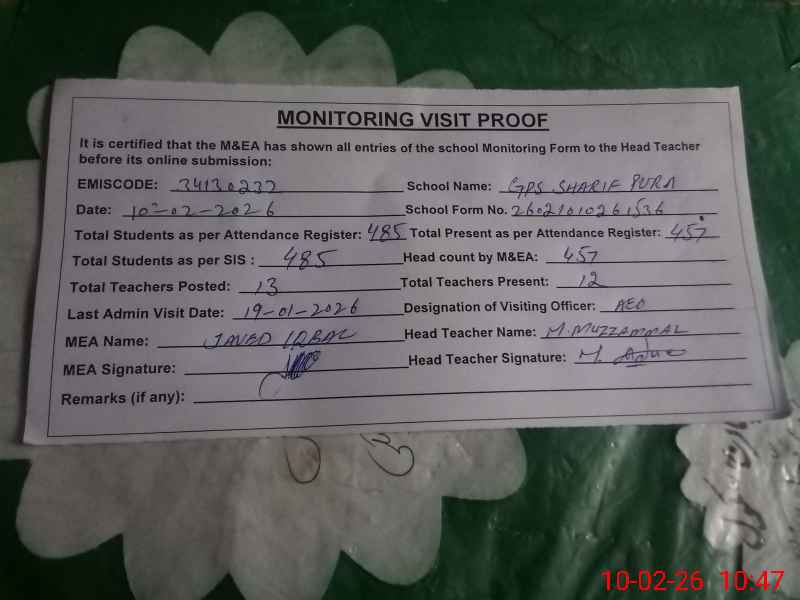 MONITORING VISIT PROOF
It is certified that the M&EA has shown all entries of the school Monitoring Form to the Head Teacher
before its online submission:
EMISCODE: 34130232 School Name: GPS SHARIF PURA
Date: 10-02-2026 School Form No. 26021010261536
Total Students as per Attendance Register: 485 Total Present as per Attendance Register: 457
Total Students as per SIS : 485 Head count by M&EA: 457
Total Teachers Posted: 13 Total Teachers Present: 12
Last Admin Visit Date: 19-01-2026 Designation of Visiting Officer: AEO
MEA Name: JAVED IQBAL Head Teacher Name: M.MUZZAMMAL
MEA Signature: Head Teacher Signature: M.
Remarks (if any):
10-02-26 10:47